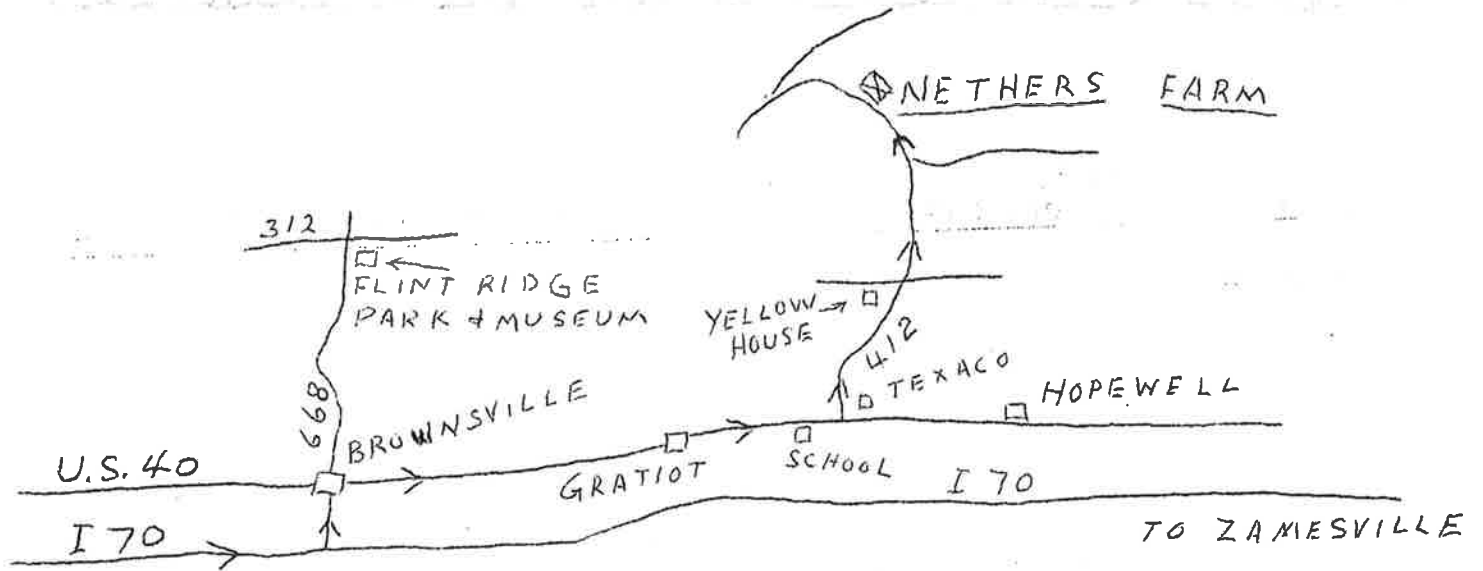 NETHERS FARM
312
FLINT RIDGE
PARK & MUSEUM
YELLOW
HOUSE
412
TEXACO
668
BROWNSVILLE
HOPEWELL
U.S. 40
GRATIOT
SCHOOL
I 70
I 70
TO ZAMESVILLE